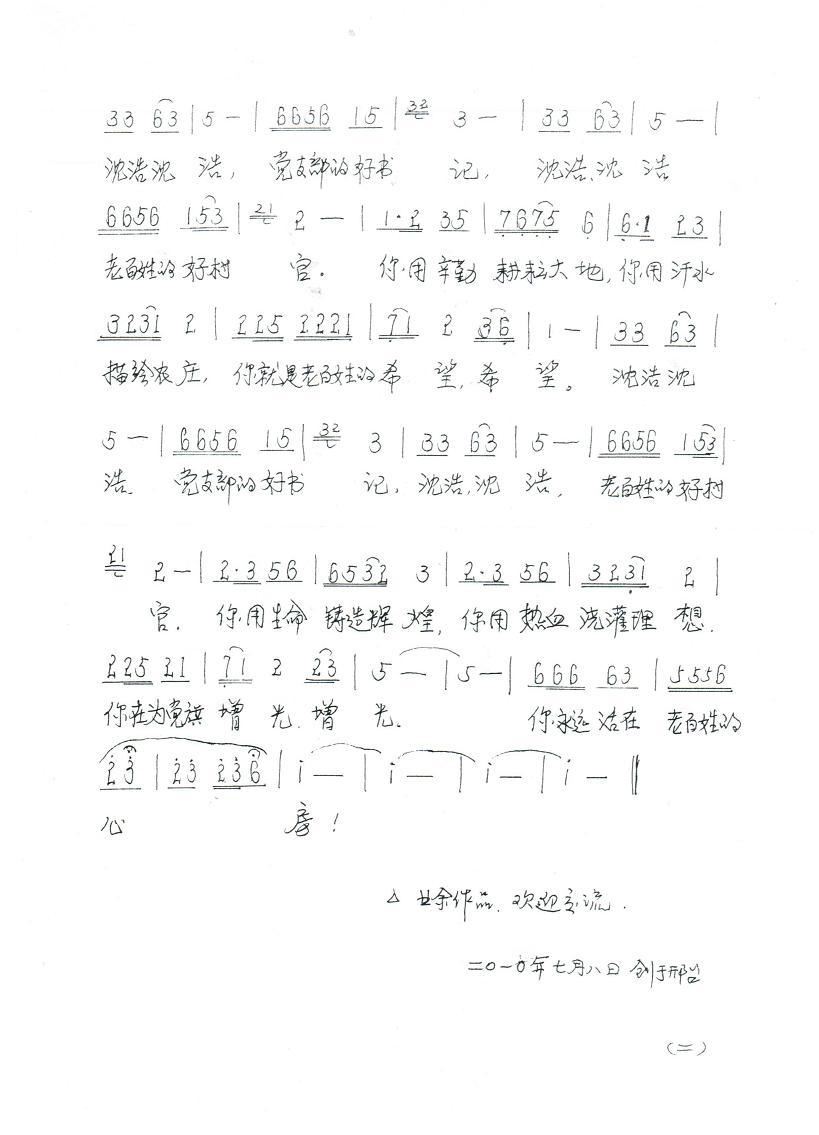 33 63 | 5 — | 6656 15 | 32 3 — | 33 63 | 5 — |
沈浩沈 浩, 党支部的好书 记, 沈浩、沈 浩
6656 153 | 21 2 — | 1·2 35 | 7675 6 | 6·1 23 |
老百姓的好村 官. 你用辛勤 耕耘大地, 你用汗水
3231 2 | 225 2221 | 71 2 36 | 1 — | 33 63 |
描绘农庄, 你就是老百姓的希 望, 希 望。 沈浩沈
5 — | 6656 15 | 32 3 | 33 63 | 5 — | 6656 153 |
浩. 党支部的好书 记, 沈浩,沈 浩, 老百姓的好村
21 2 — | 2·3 56 | 6532 3 | 2·3 56 | 3231 2 |
官. 你用生命 铸造辉 煌, 你用 热血 浇灌理 想.
225 21 | 71 2 23 | 5 — | 5 — | 666 63 | 5556
你在为党旗 增 光、增 光. 你永远 活在 老百姓的
23 | 23 236 | i — | i — | i — | i — ‖
心 房!
△ 业余作品. 欢迎交流.
二〇一〇年七月八日 创于邢台
(二)